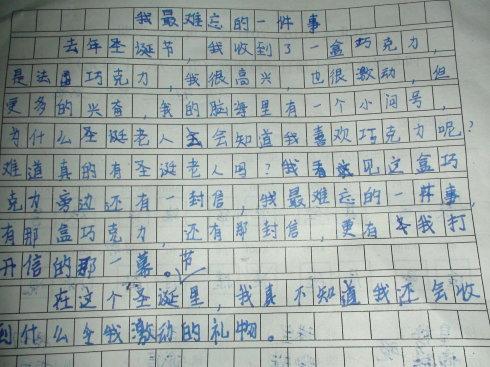 我最难忘的一件事
去年圣诞节，我收到了一盒巧克力，
是法国巧克力，我很高兴，也很激动，但
更多的兴奋，我的脑海里有一个小问号，
为什么圣诞老人会知道我喜欢巧克力呢？
难道真的有圣诞老人吗？我看见这盒巧
克力旁边还有一封信，我最难忘的一件事，
有那盒巧克力，还有那封信，更有我打
开信的那一幕。
在这个圣诞节里，我真不知道我还会收
到什么令我激动的礼物。